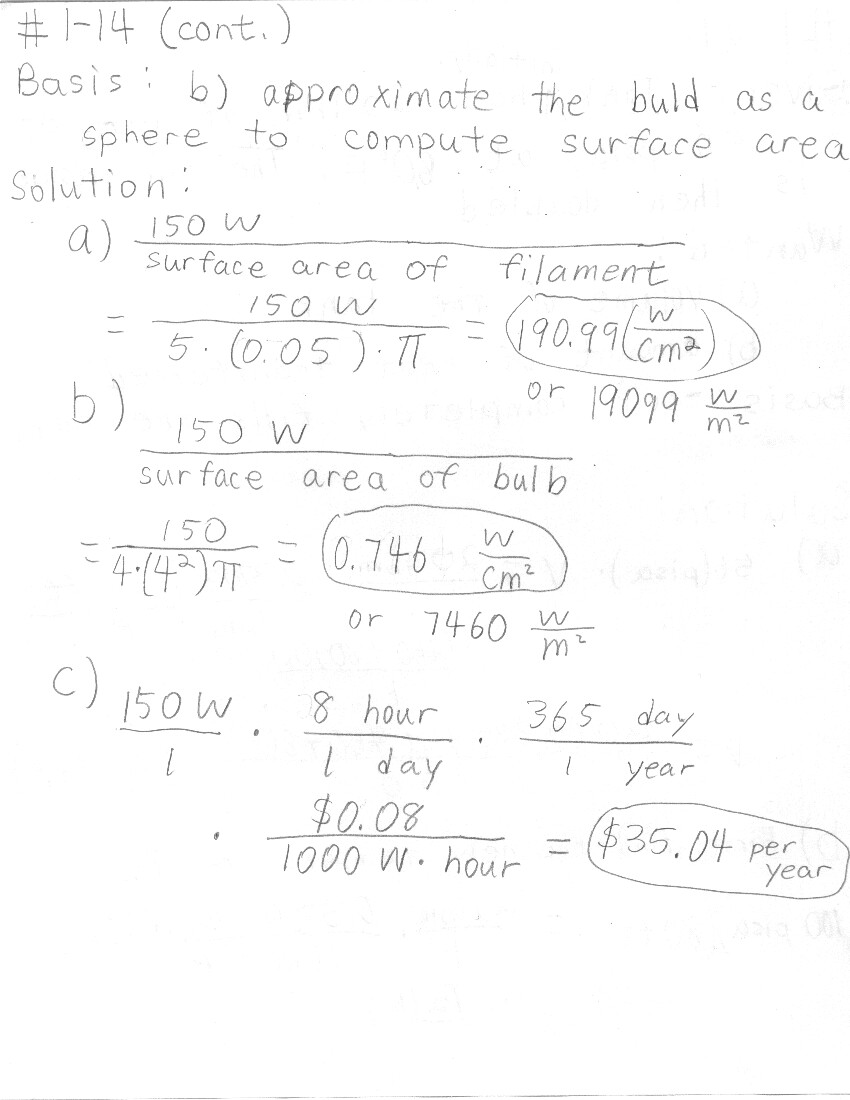 # 1-14 (cont.)
Basis: b) approximate the buld as a
sphere to compute surface area
Solution:
a) 150 W
surface area of filament
= 150 W / 5·(0.05)·π = 190.99 (W/cm²)
or 19099 W/m²
b) 150 W
surface area of bulb
= 150 / 4·(4²)π = 0.746 W/cm²
or 7460 W/m²
c) 150 W / 1 · 8 hour / 1 day · 365 day / 1 year
· $0.08 / 1000 W·hour = $35.04 per year